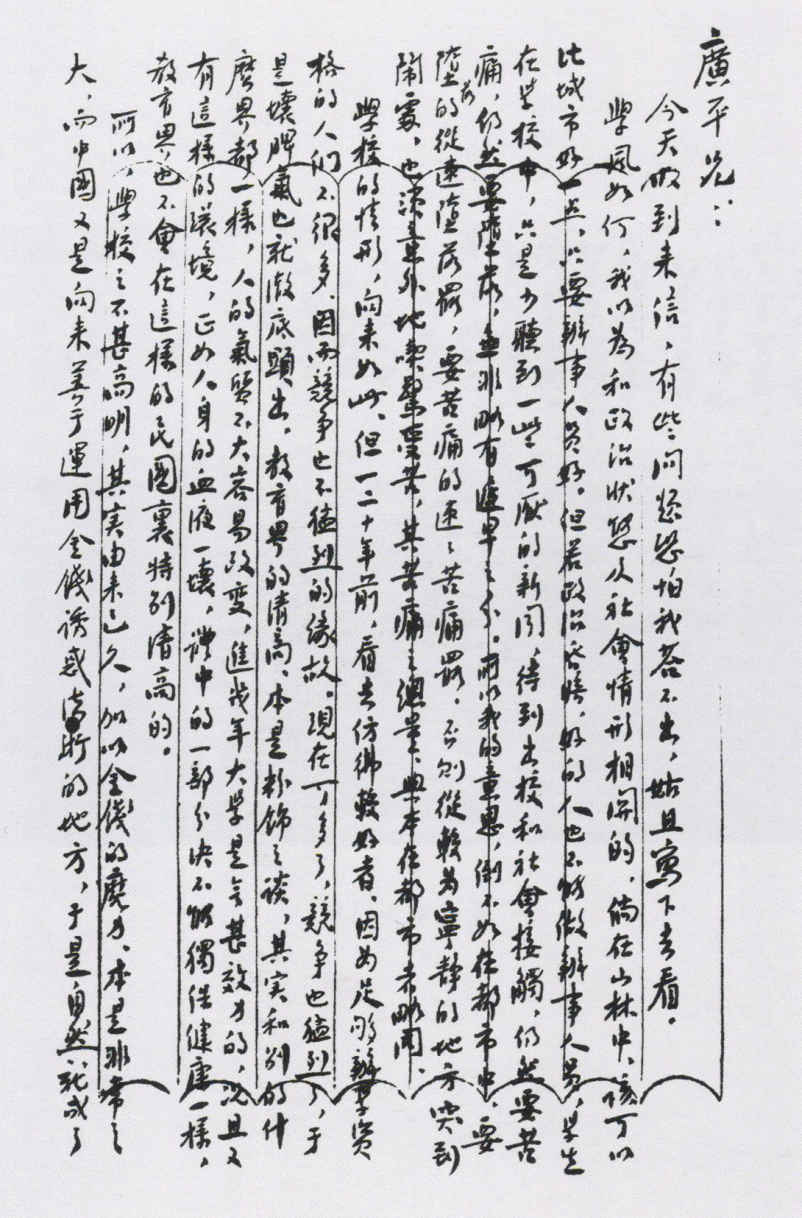 廣平兄：
今天收到来信，有些問題恐怕我荅不出，姑且寫下去看。
學風如何，我以為和政治狀態及社會情形相関的，倘在山林中，該可以
比城市好一点，只要辦事人員好。但若政治昏暗，好的人也不能做辦事人員，学生
在学校中，只是少聽到一些可厭的新聞，待到出校和社會接觸，仍然要苦
痛，仍然要墮落，無非略有遲早之分。所以我的意思，倒不如在都市中，要
墮落的從速墮落罷，要苦痛的速々苦痛罷，否則從較為寧静的地方突到
鬧處，也須意外地喫驚受苦，其苦痛之總量，與本在都市者略同。
學校的情形，向来如此，但一二十年前，看去仿彿較好者，因為足够辦学資
格的人們不很多，因而競爭也不猛烈的緣故。現在可多了，競爭也猛烈了，于
是壞脾氣也就澈底顯出。教育界的清高，本是粉飾之談，其实和别的什
麽界都一樣，人的氣質不大容易改變，進幾年大学是無甚效力的，况且又
有這樣的環境，正如人身的血液一壞，體中的一部分决不能獨保健康一樣，
教育界也不會在這樣的民國裏特别清高的。
所以，學校之不甚高明，其实由来已久，加以金錢的魔力，本是非常之
大，而中國又是向来善于運用金錢誘惑法術的地方，于是自然就成了